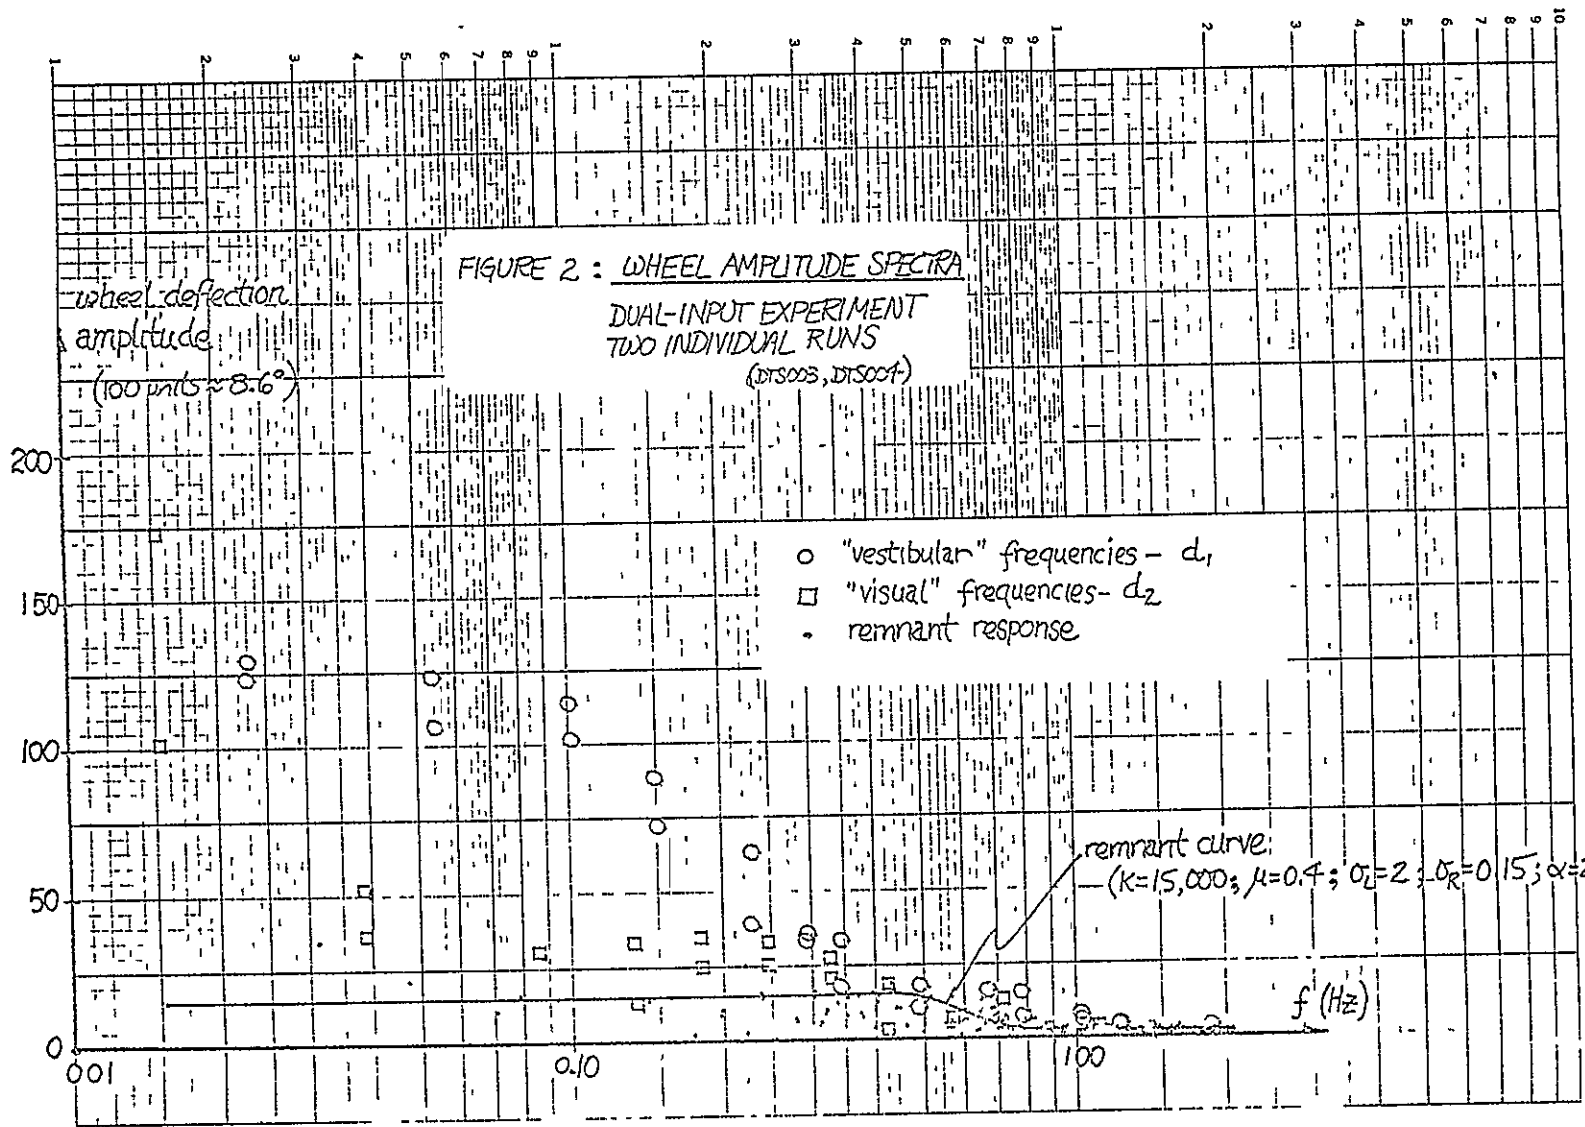 1 2 3 4 5 6 7 8 9 1 2 3 4 5 6 7 8 9 1 2 3 4 5 6 7 8 9 10
FIGURE 2 : WHEEL AMPLITUDE SPECTRA
DUAL-INPUT EXPERIMENT
TWO INDIVIDUAL RUNS
(DTS003, DTS004)
wheel deflection
amplitude
(100 units ≈ 8.6°)
200
"vestibular" frequencies - d₁
"visual" frequencies - d₂
remnant response
150
100
remnant curve:
(K=15,000; μ=0.4; σL=2; σR=0.15; α=2
50
f (Hz)
0
0.01
0.10
1.00